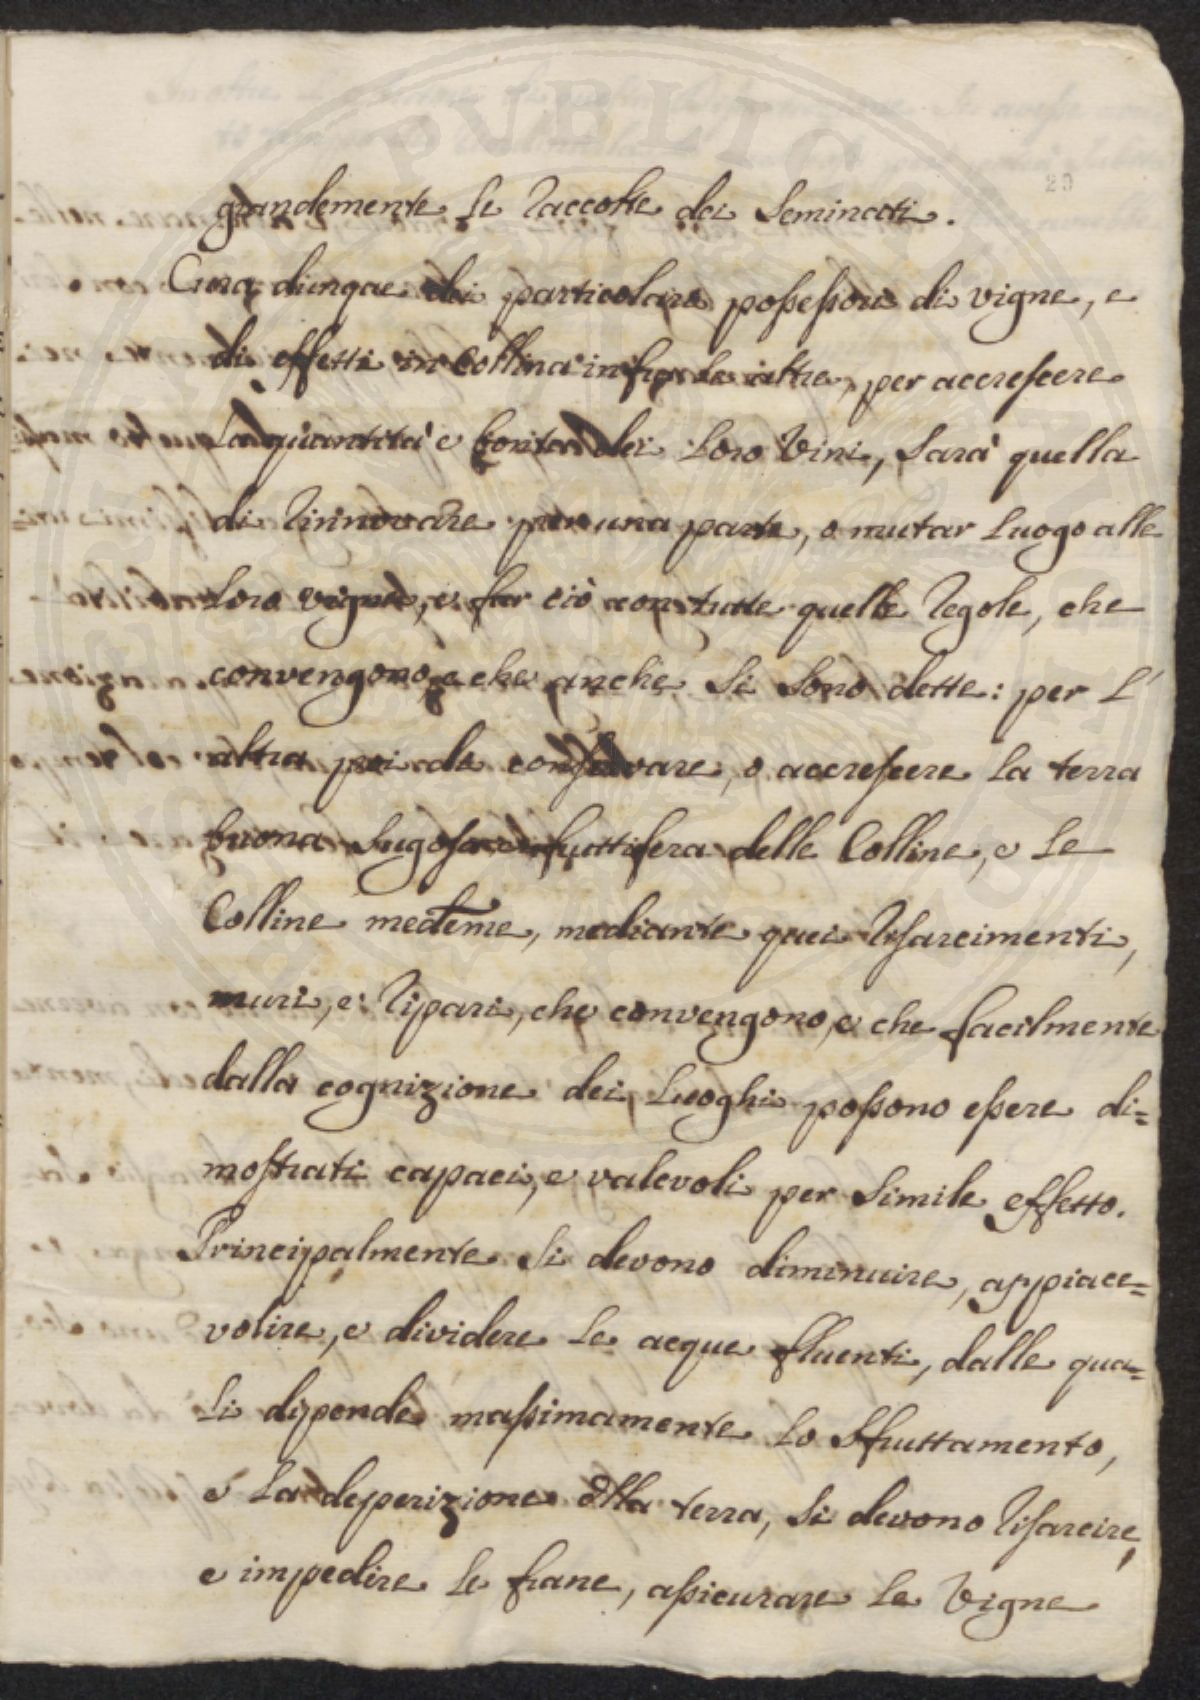 29
grandemente le raccolte dei Seminati.
Cura dunque dei particolari possessori di vigne, e
di effetti in Collina infra le altre, per accrescere
la quantità e bontà dei loro Vini, sarà quella
di rinnovare per una parte, o mutar luogo alle
loro vigne, e far ciò con tutte quelle regole, che
convengono, e che anche si sono dette: per l'
altra poi di conservare, o accrescere la terra
buona sugosa e fruttifera delle Colline, e le
Colline medeme, mediante quei risarcimenti,
muri, e ripari, che convengono, e che facilmente
dalla cognizione dei luoghi possono essere di=
mostrati capaci, e valevoli per simile effetto.
Principalmente si devono diminuire, appiace=
volire, e dividere le acque fluenti, dalle qua=
li dipende massimamente lo sfruttamento,
e la deperizione della terra, si devono risarcire,
e impedire le frane, assicurare le Vigne